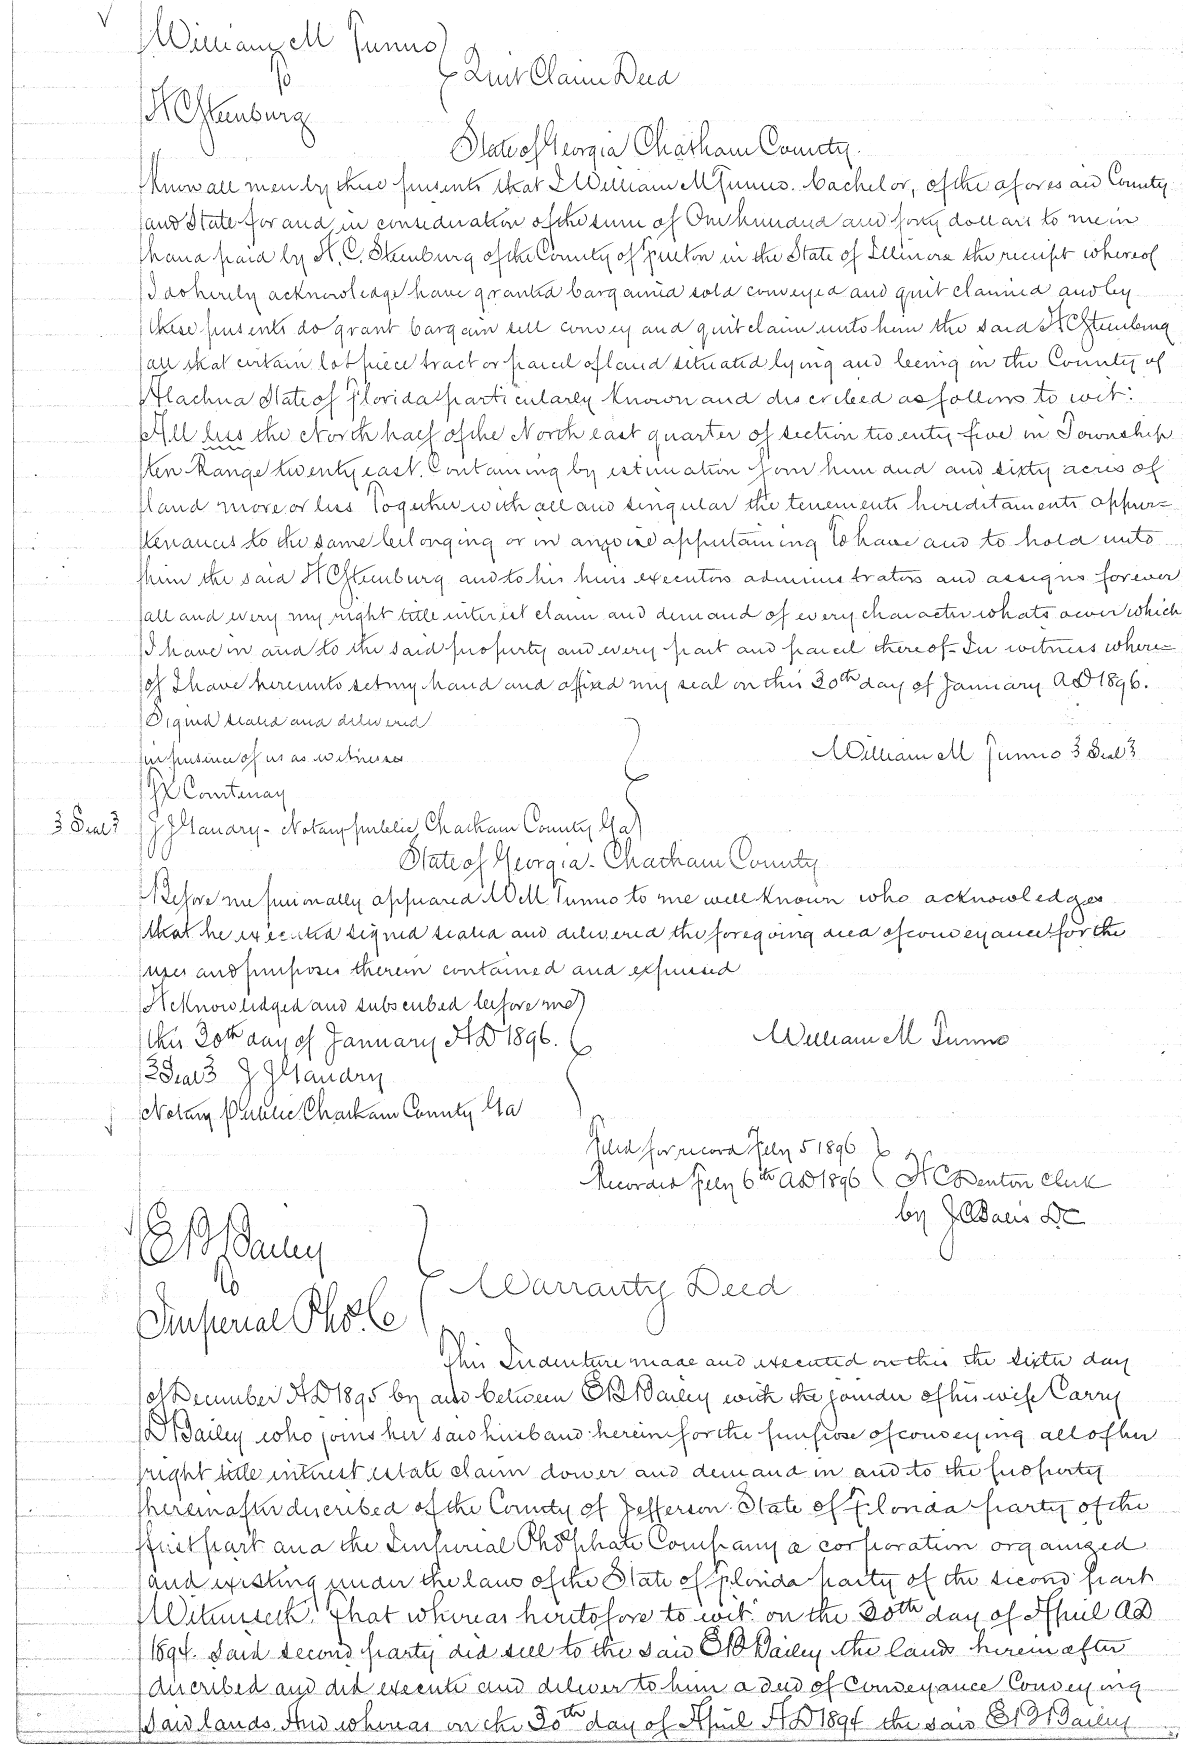 William M Tunno
To
Quit Claim Deed
H C Steenburg
State of Georgia Chatham County.
Know all men by these presents that I William M Tunno. bachelor, of the aforesaid County
and State for and in consideration of the sum of One hundred and forty dollars to me in
hand paid by H. C. Steenburg of the County of Fulton in the State of Illinois the receipt whereof
I do hereby acknowledge have granted bargained sold conveyed and quit claimed and by
these presents do grant bargain sell convey and quit claim unto him the said H C Steenburg
all that certain lot piece tract or parcel of land situated lying and being in the County of
Alachua State of Florida particularly known and described as follows to wit:
All less the North half of the North east quarter of section twenty five in Township
ten Range twenty east. Containing by estimation four hundred and sixty acres of
land more or less Together with all and singular the tenements hereditaments appur=
tenances to the same belonging or in anywise appertaining To have and to hold unto
him the said H C Steenburg and to his heirs executors administrators and assigns forever
all and every my right title interest claim and demand of every character whatsoever which
I have in and to the said property and every part and parcel thereof- In witness where=
of I have hereunto set my hand and affixed my seal on this 30th day of January A D 1896.
Signed sealed and delivered
in presence of us as witnesses
William M Tunno Seal
Courtenay
Seal J J Gaudry- Notary public Chatham County Ga
State of Georgia- Chatham County
Before me personally appeared W M Tunno to me well known who acknowledges
that he executed signed sealed and delivered the foregoing deed of conveyance for the
uses and purposes therein contained and expressed
Acknowledged and subscribed before me
this 30th day of January A D 1896.
William M Tunno
Seal J J Gaudry
Notary Public Chatham County Ga
Filed for record Feby 5 1896
Recorded Feby 6th A D 1896 H C Denton Clerk
by J C D.C
E B Bailey
To
Warranty Deed
Imperial Phos. Co
This Indenture made and executed on this the sixth day
of December A D 1895 by and between E B Bailey with the joinder of his wife Carry
D Bailey who joins her said husband herein for the purpose of conveying all of her
right title interest estate claim dower and demand in and to the property
hereinafter described of the County of Jefferson State of Florida party of the
first part and the Imperial Phosphate Company a corporation organized
and existing under the laws of the State of Florida party of the second part
Witnesseth. That whereas heretofore to wit on the 30th day of April A D
1894. said second party did sell to the said E B Bailey the lands herein after
discribed and did execute and deliver to him a deed of conveyance Conveying
said lands. And whereas on the 30th day of April A D 1894 the said E B Bailey